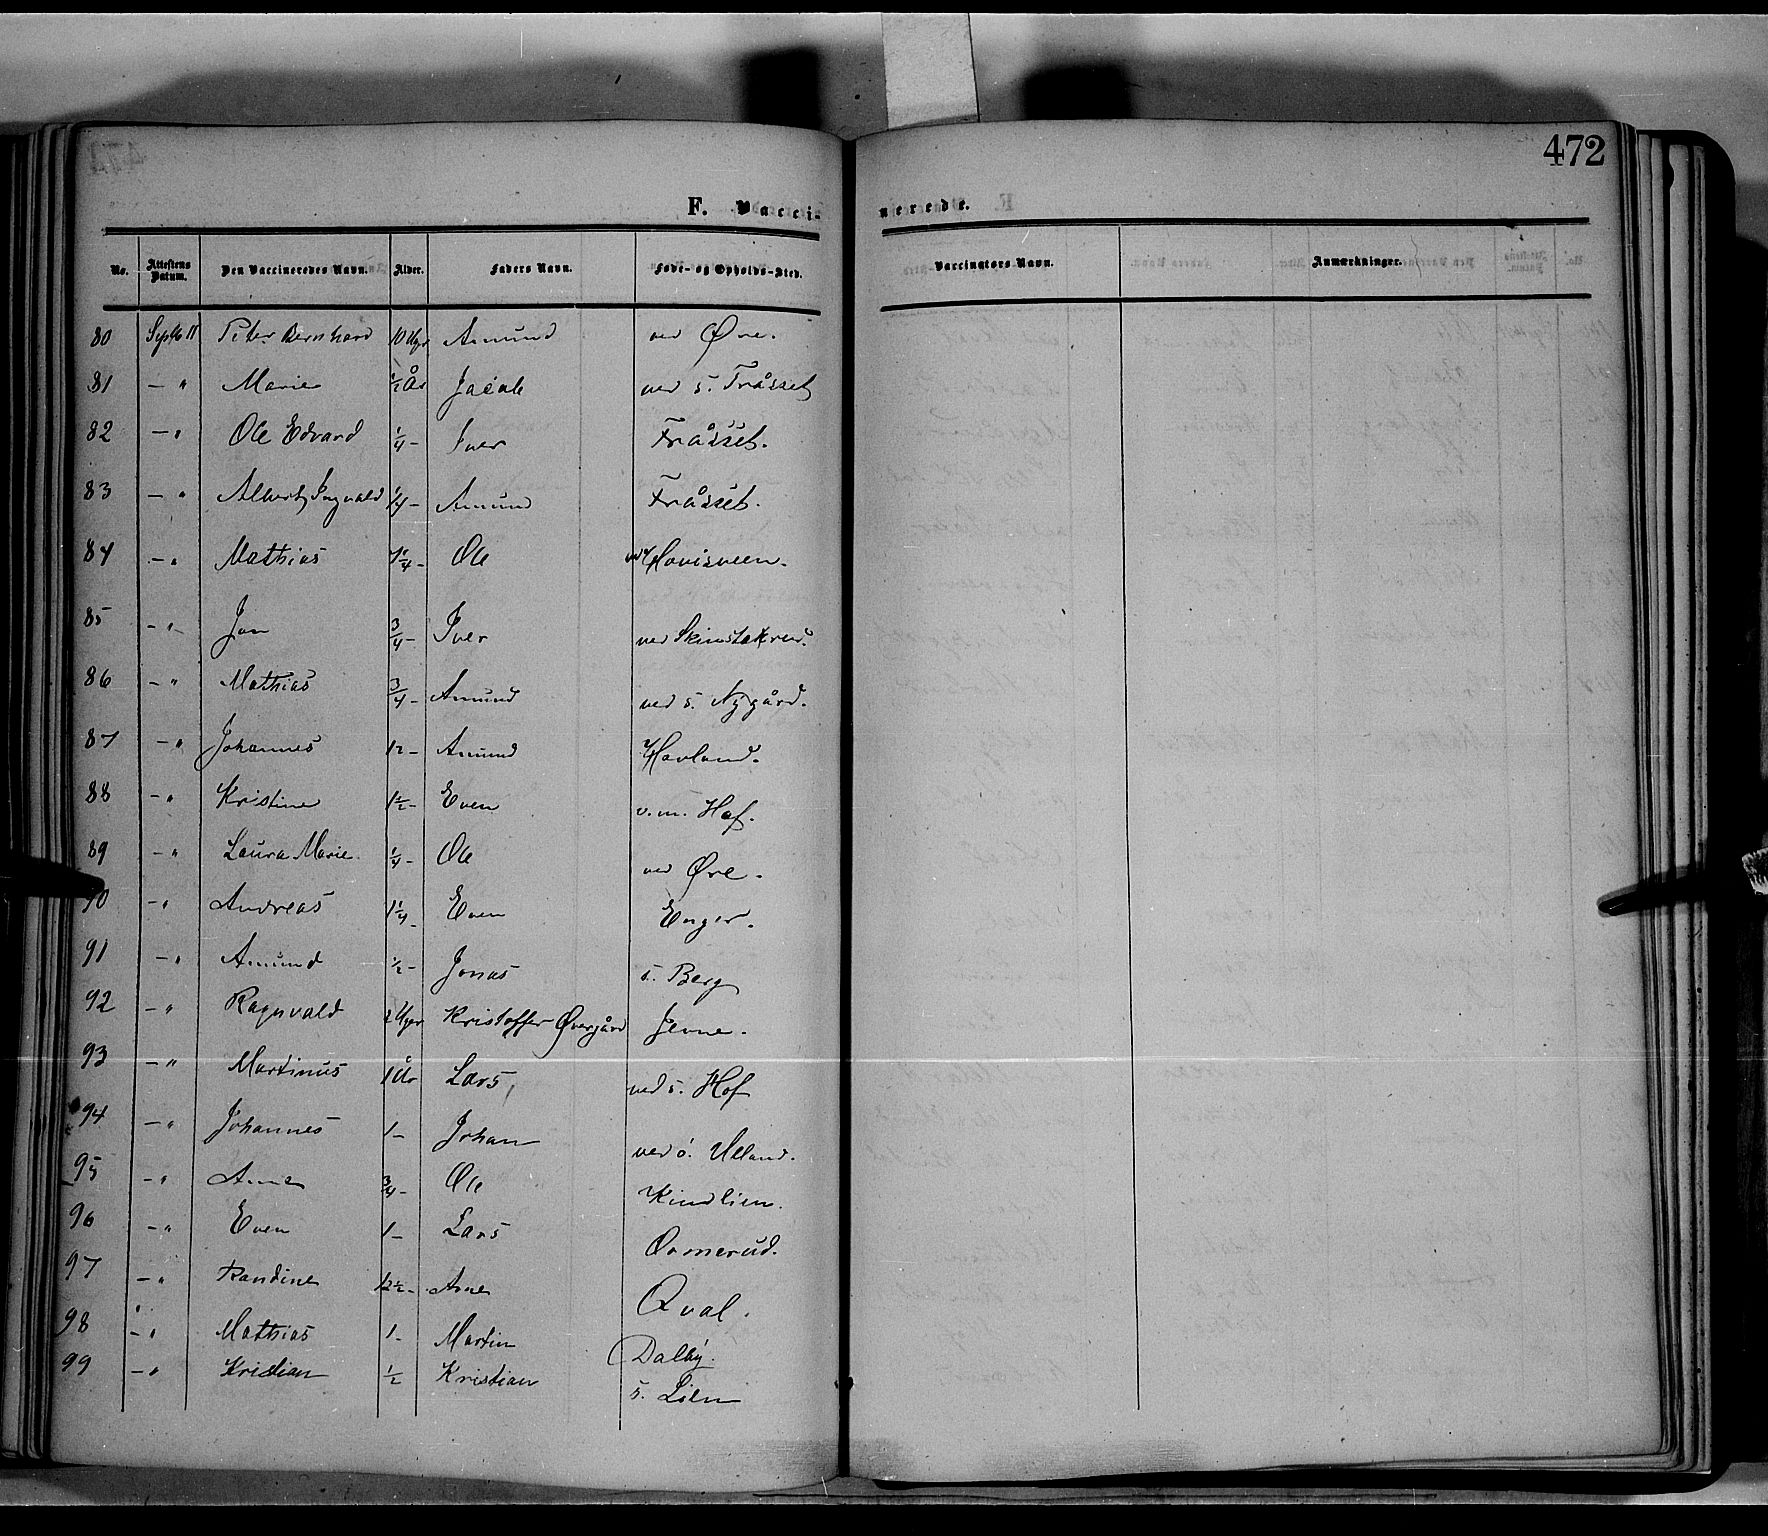 472
F. Vaccinerede.
No. Attestens Datum. Den Vaccineredes Navn. Alder. Faders Navn. Føde- og Opholds-Sted. Vaccinators Navn. Anmærkninger.
80 Septb 11 Peter Bernhard 10 Uger Amund ved Øvre.
81 — " Marie ½ År Jacob ved s. Fråsset
82 — " Ole Edvard ¼ - Iver Fråsset.
83 — " Albert Ingvald ¼ - Amund Fråsset.
84 — " Mathias 1¼ - Ole ved Hovisveen.
85 — " Jon ¾ - Iver ved
86 — " Mathias ¾ - Amund ved s. Nygård.
87 — " Johannes 12 - Amund Havland.
88 — " Kristine 1½ - Even v. m. Hof.
89 — " Laura Marie ¼ - Ole ved Øvre.
90 — " Andreas 1¼ - Even Enger.
91 — " Amund ½ - Jonas s. Berg
92 — " Ragnvald 2 Uger Kristoffer Øvergård Jevne.
93 — " Martinus 1 År Lars ved s. Hof
94 — " Johannes 1 - Johan ved ø. Ulland.
95 — " Anne ¾ - Ole Kindlien.
96 — " Even 1 - Lars Ormerud.
97 — " Randine 12½ - Arne Qval.
98 — " Mathias 1 - Martin Dalby.
99 — " Kristian ½ Kristian s. Lien